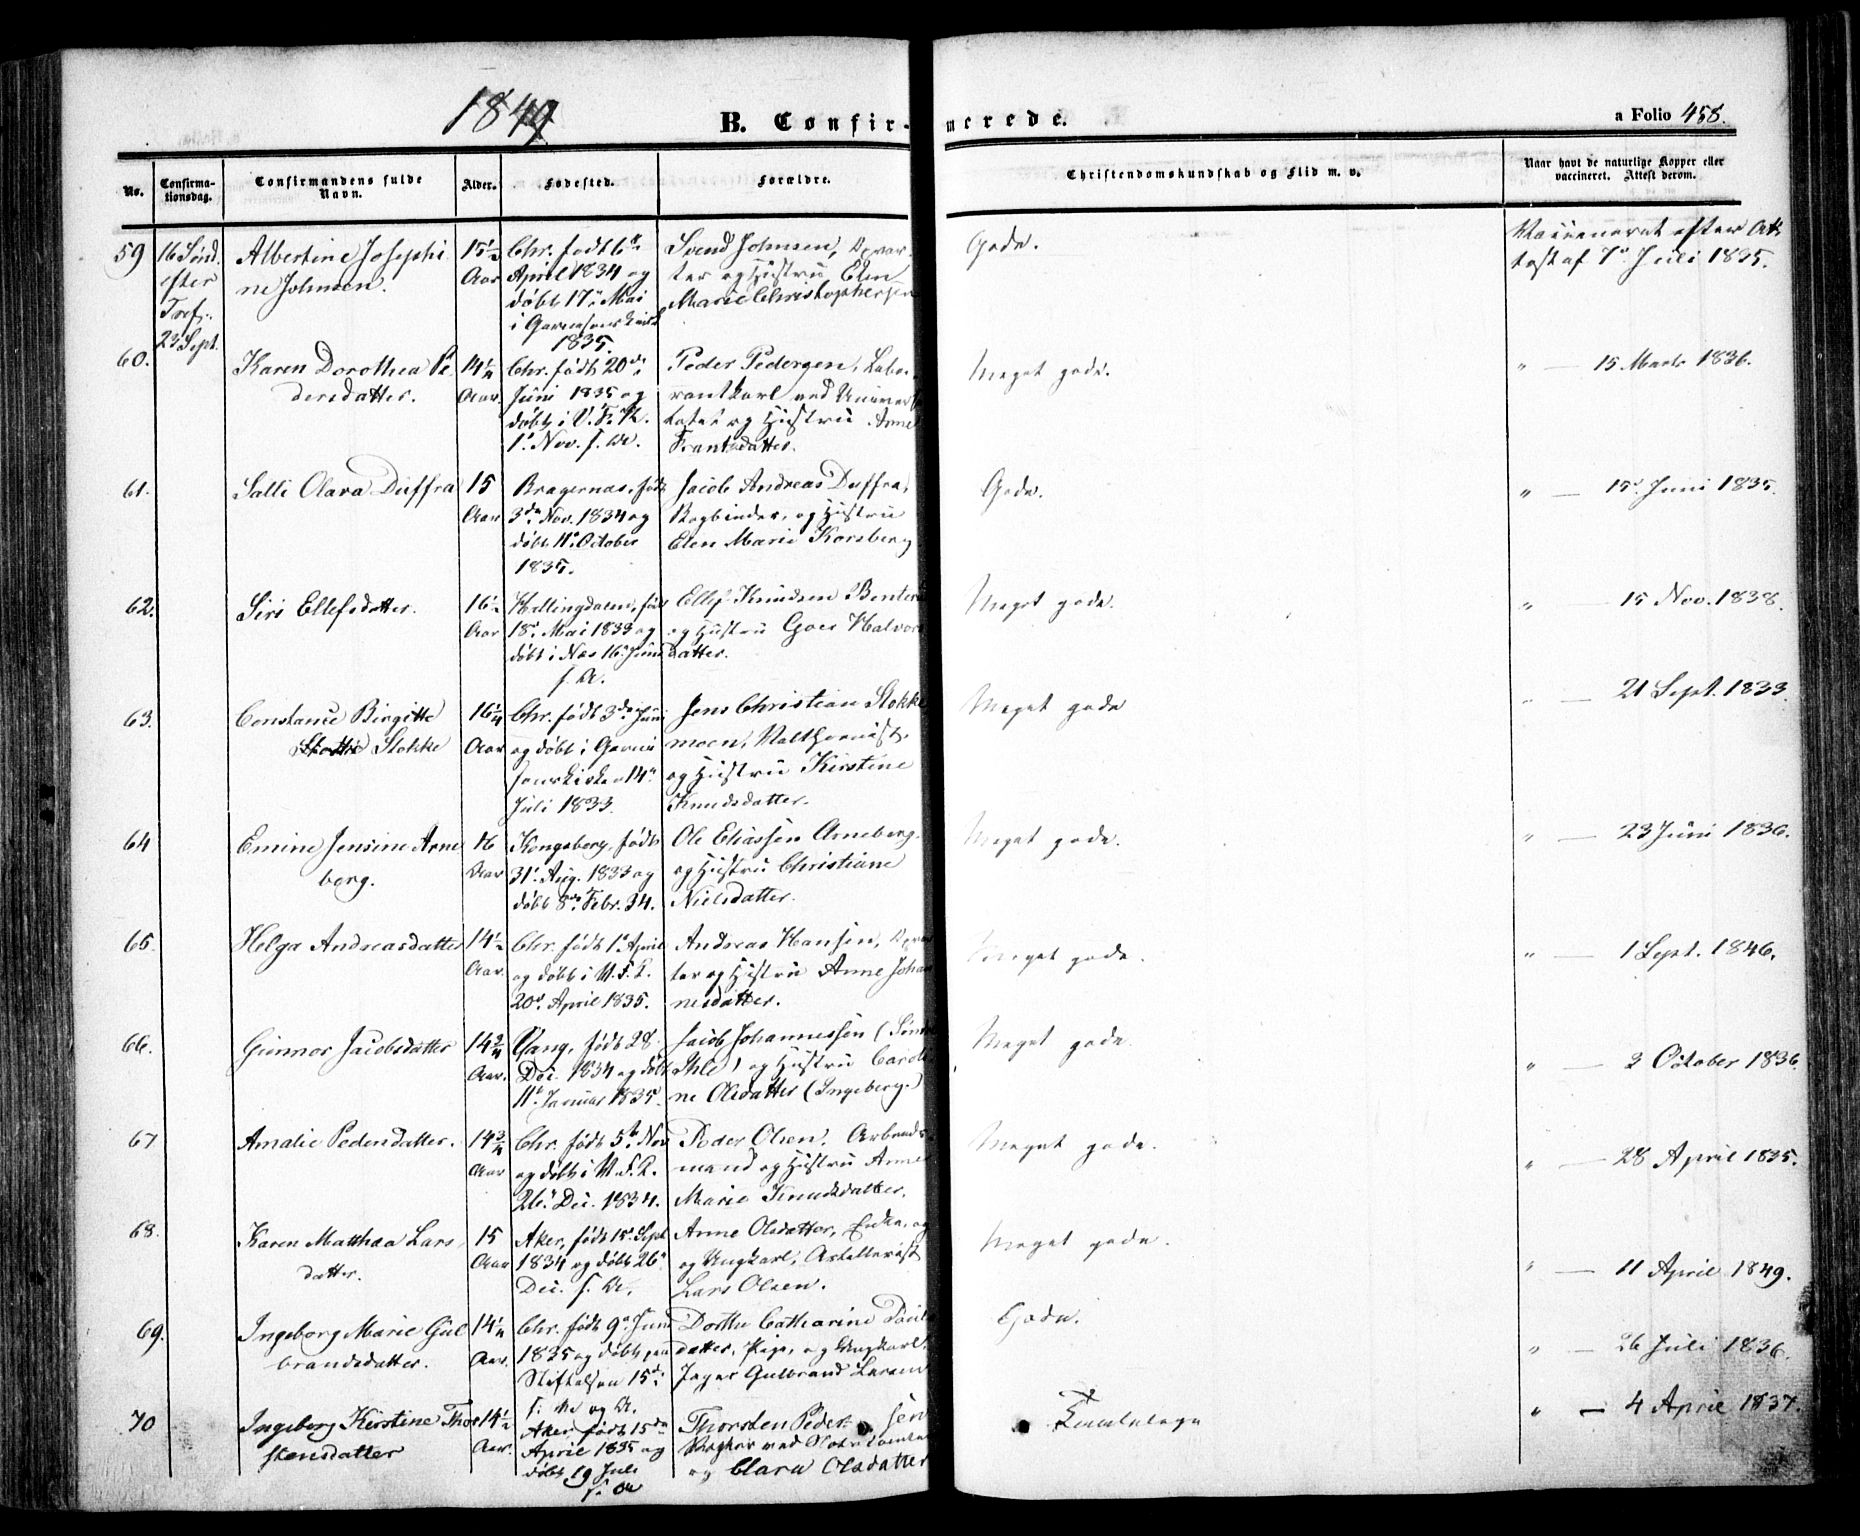 1849
B. Confir-merede.
a Folio 458.
No.
Confirma-
tionsdag.
Confirmandens fulde
Navn.
Alder.
Fødested.
Forældre.
Christendomskundskab og Flid m. v.
Naar havt de naturlige Kopper eller
vaccineret. Attest derom.
59
16 Sønd.
efter
Tref.
23 Sept.
Albertine Josephi
ne Johnsen.
15½
Aar
Chr. født 6te
April 1834 og
døbt 17de Mai
i Garnisons Kirk
1835.
Svend Johnsen,
og Hustru Elen
Marie Christophersen
Gode.
Vaccineret efter At
test af 7de Juli 1835.
60.
Karen Dorothea Pe
dersdatter.
14¼
Aar.
Chr. født 20de
Juni 1835 og
døbt i V. F. K.
1ste Nov. s. A.
Peder Pedersen, Labo
rantkarl ved Univers
og Hustru Anne
Frantzdatter.
Meget gode.
" — 15 Marts 1836.
61.
Salli Clara Duffra
15
Aar
Bragernæs, født
3die Nov. 1834 og
døbt 11te October
1835.
Jacob Andreas Duffra,
Bogbinder, og Hustru
Elen Marie Korsberg
Gode.
" — 15de Juni 1835.
62.
Siri Ellefsdatter.
16½
Aar
Hallingdalen, født
18de Mai 1833 og
døbt i Næs 16de Juni
s. A.
Ellef Knudsen
og Hustru Goes Halvors
datter.
Meget gode.
" — 15 Nov. 1838.
63.
Constance Birgitte
Stokke
16¼
Aar
Chr. født 3die Juni
og døbt i Garni
sonskirken 14de
Juli 1833.
Jens Christian Stokke
moen, Valthornist
og Hustru Kirstine
Knudsdatter.
Meget gode
" — 21 Sept. 1833.
64
Emine Jensine Arne
berg.
16
Aar
Kongsberg, født
31te Aug. 1833 og
døbt 8de Febr. 34.
Ole Eliassen Arneberg
og Hustru Christiane
Nielsdatter.
Meget gode.
" — 23 Juni 1836.
65.
Helga Andreasdatter
14½
Aar.
Chr. født 1ste April
og døbt i V. F. K.
20de April 1835.
Andreas Hansen,
og Hustru Anne Johan
nesdatter.
Meget gode.
" — 1 Sept. 1846.
66.
Gunnor Jacobsdatter
14¾
Aar.
Vang, født 28
Dec. 1834 og døbt
11te Januar 1835.
Jacob Johannessen
og Hustru Caroli
ne Olsdatter (Ingeberg.)
Meget gode.
" — 3 October 1836.
67
Amalie Pedersdatter.
14¾
Aar
Chr. født 5te Nov
og døbt i V. F. K.
26de Dec. 1834.
Peder Olsen, Arbeids
mand og Hustru Anne
Marie Knudsdatter.
Meget gode.
" — 28 April 1835.
68.
Karen Matthea Lars
datter.
15
Aar
Aker, født 15de Sept
1834 og døbt 26de
Dec. s. A.
Anne Olsdatter, Enke, og
og Ungkarl, Artillerist
Lars Olsen.
Meget gode.
" — 11 April 1849.
69.
Ingeborg Marie Gul
brandsdatter.
14¼
Aar.
Chr. født 9de Juni
1835 og døbt paa
Stiftelsen 15de
s. M. og A.
Dorthe Catharine Pauls
datter, Pige, og Ungkarl,
Jæger Gulbrand Larsen
Gode.
" — 26 Juli 1836.
70
Ingeborg Kirstine Thor
stensdatter
14½
Aar.
Aker, født 15de
April 1835 og
døbt 19 Juli
s. A.
Thorsten Peder sen
og Clara Olsdatter
" — 4 April 1837.